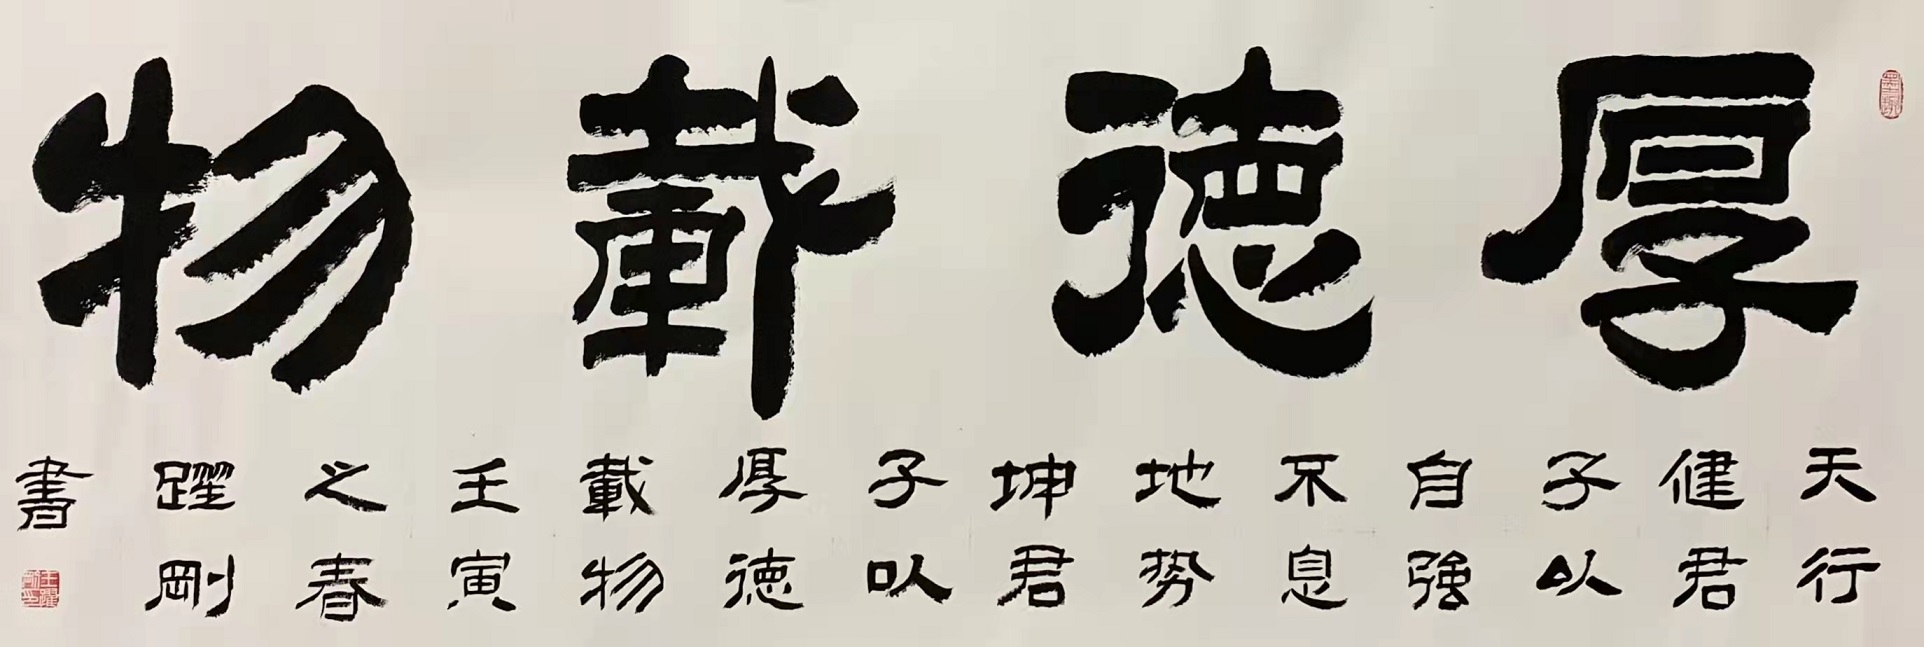 厚德載物
天行
健君
子以
自強
不息
地势
坤君
子以
厚德
載物
壬寅
之春
躍剛
書